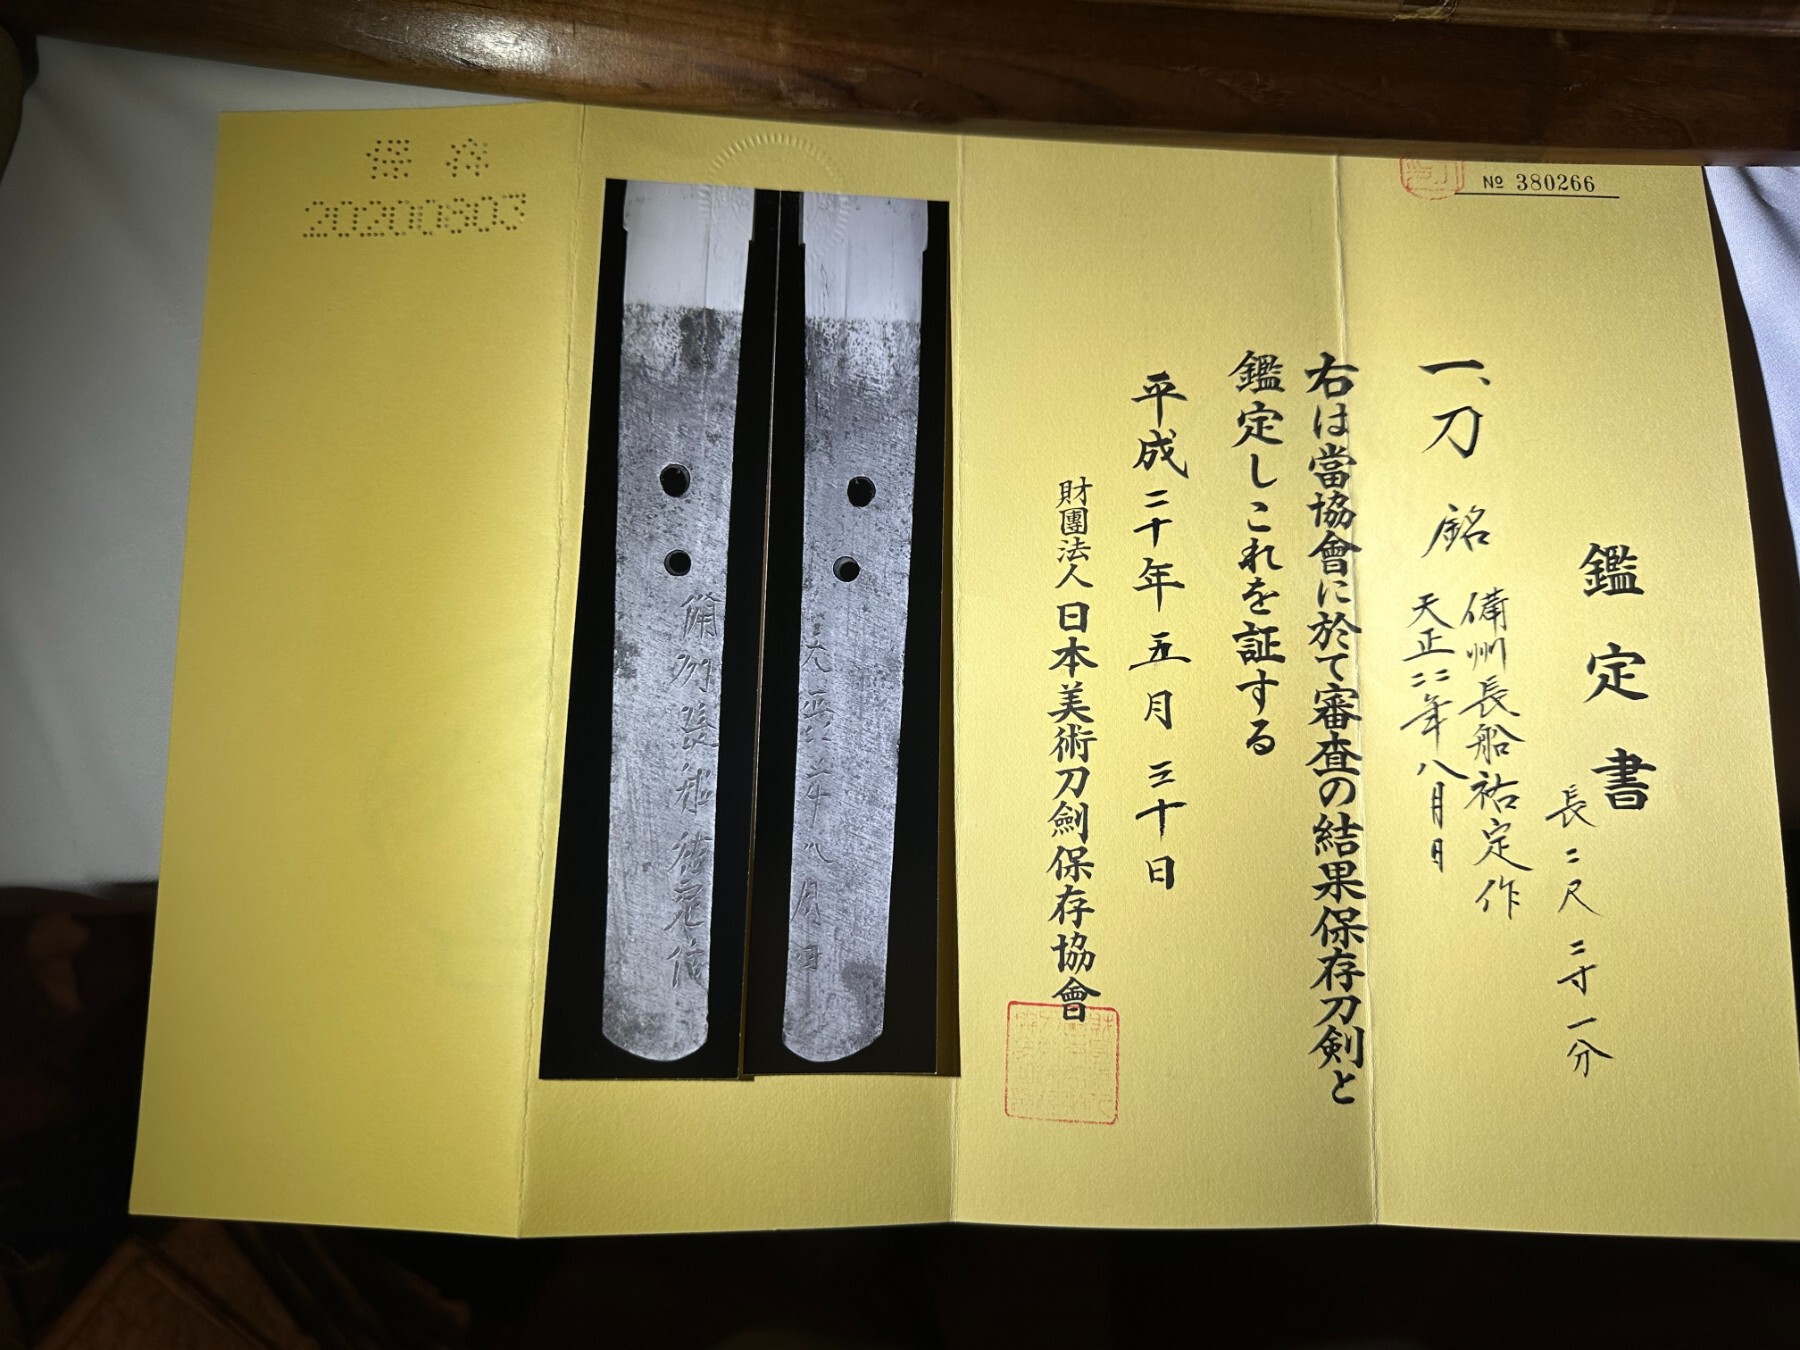 № 380266
鑑定書
長二尺二寸一分
一、刀 銘 備州長船祐定作
天正二二年八月日
右は當協會に於て審査の結果保存刀剣と
鑑定しこれを証する
平成二十年五月三十日
財團法人 日本美術刀劍保存協會
天正二二年八月日
備州長船祐定作
保存
20200803